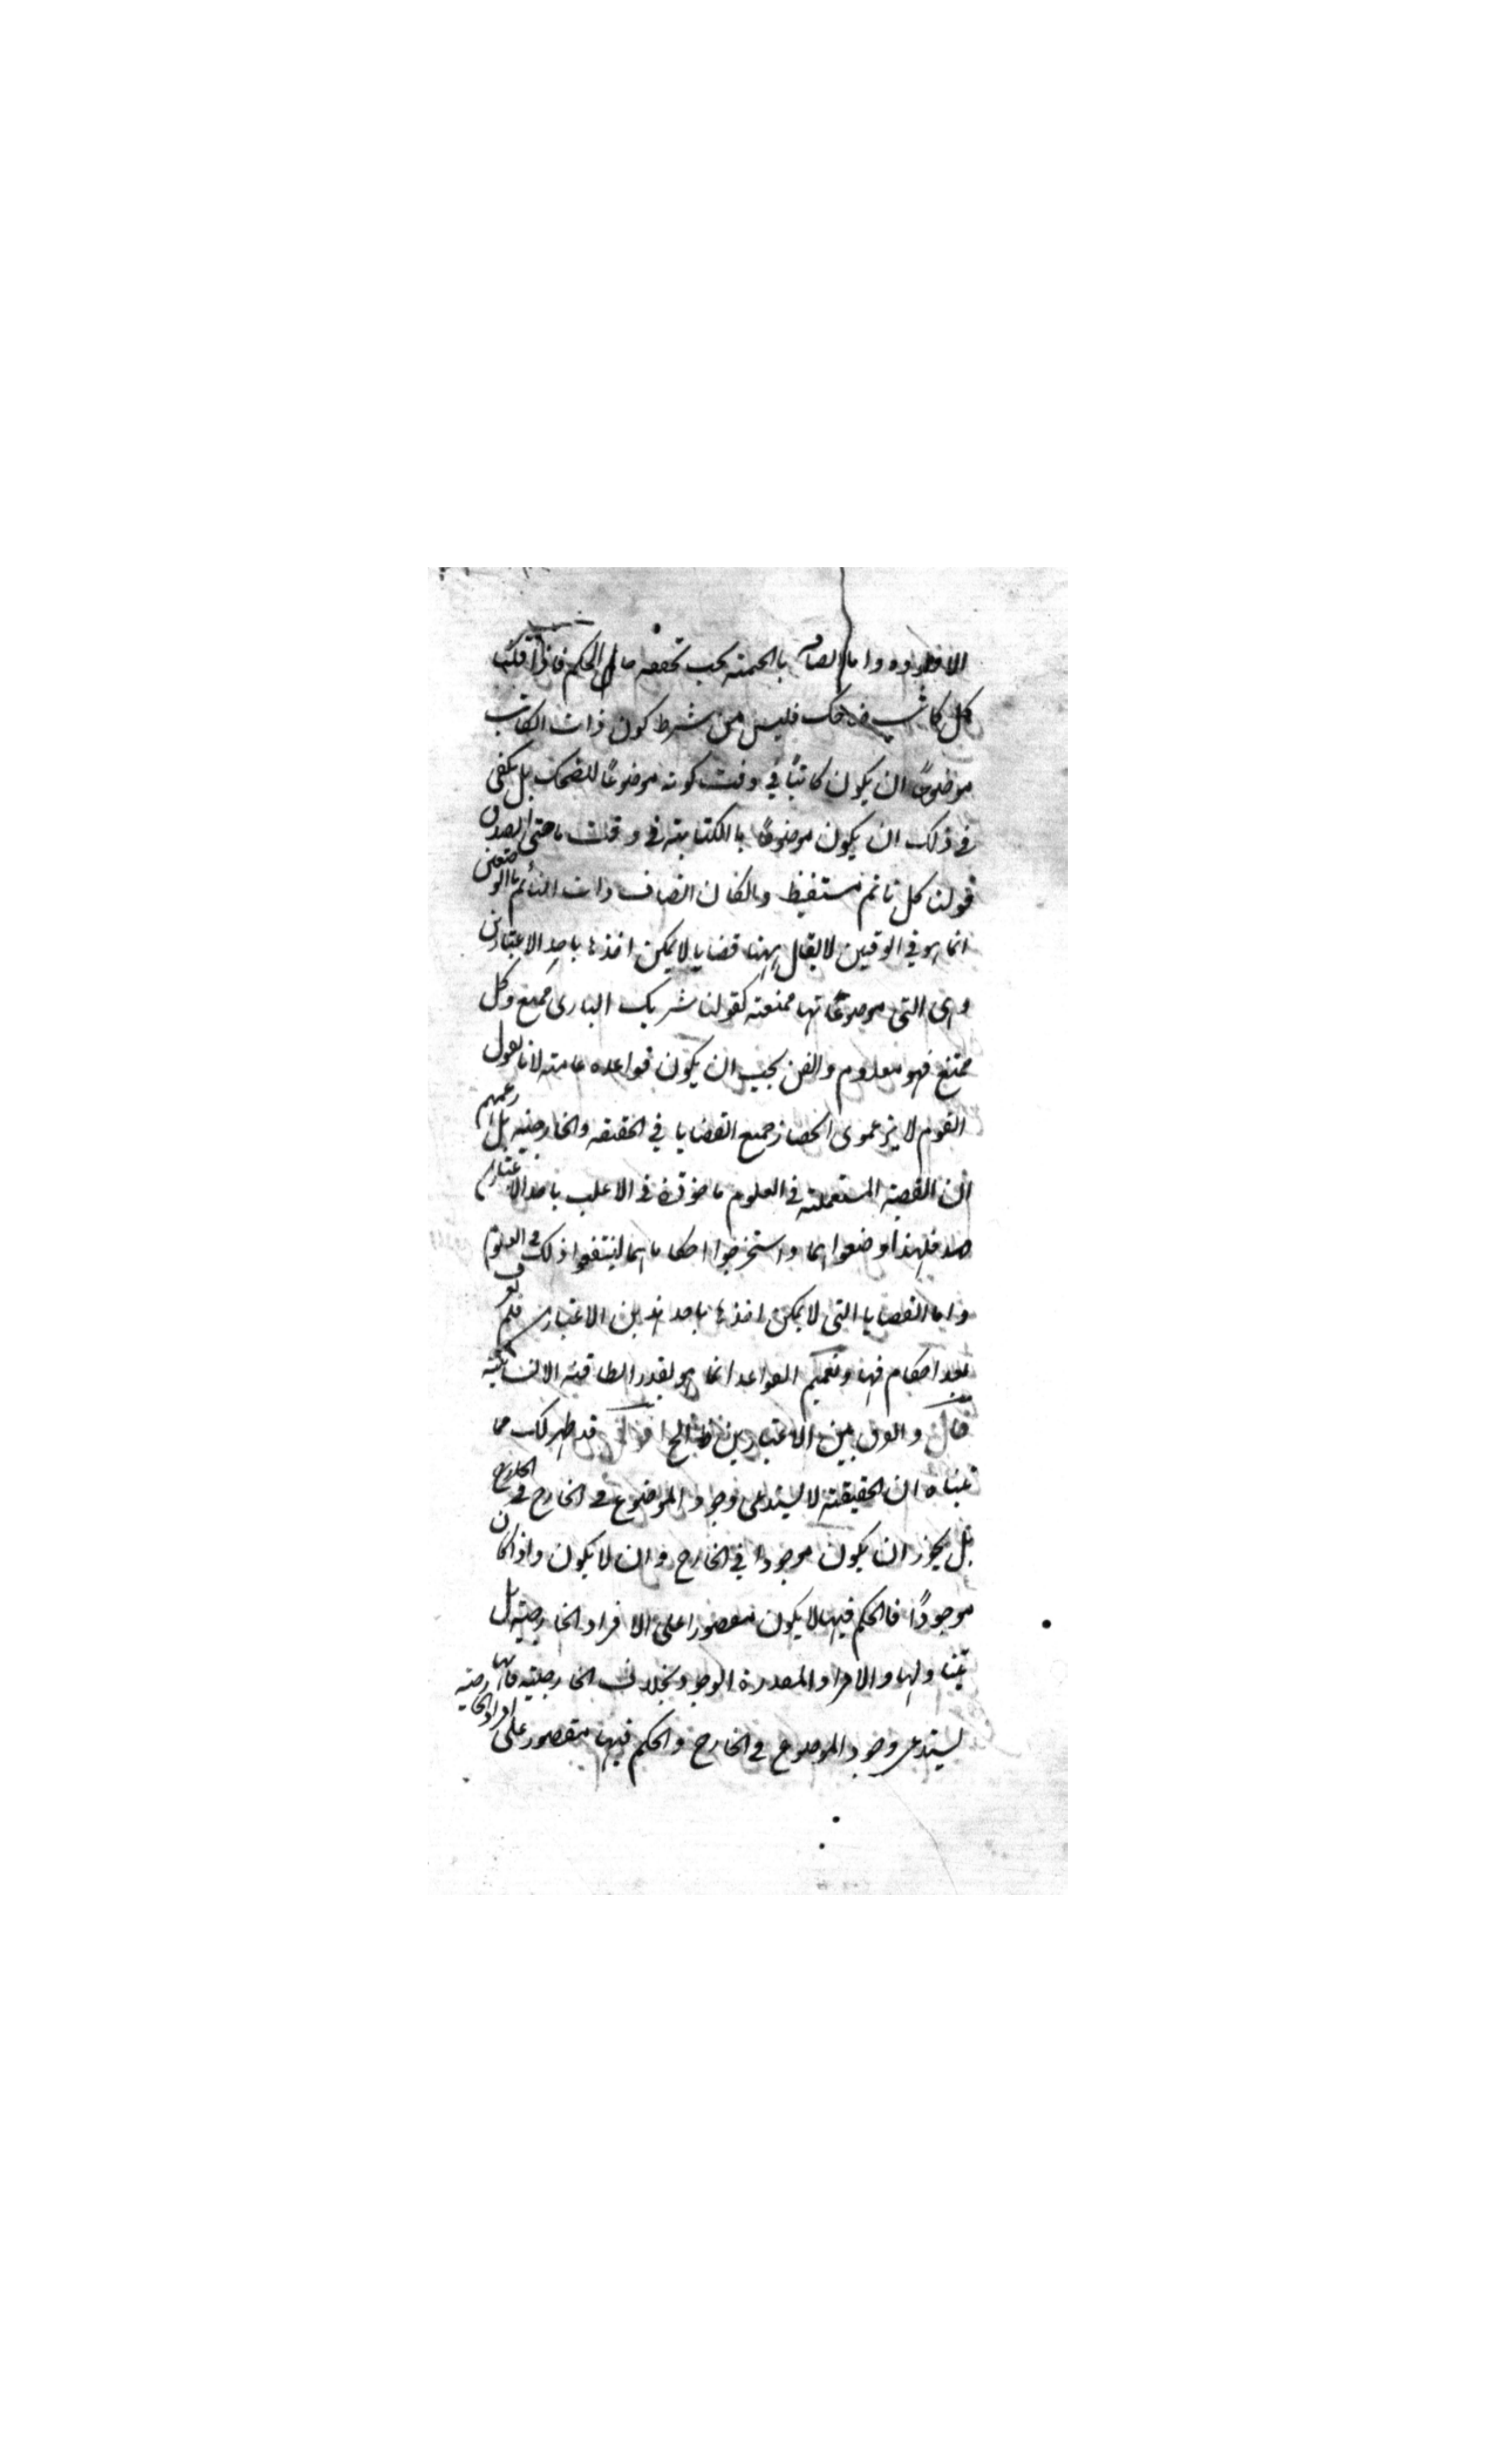 الافراد واما اتصافه بالحيثية يجب تحققه حال الحكم فاذا قلنا
كل كاتب ضاحك فليس من شرط كون ذات الكاتب
موضوعًا ان يكون كاتبًا في وقت كونه موضوعًا للضحك بل يكفى
في ذلك ان يكون موضوعًا بالكتابة في وقت ما حتى يصدق
قولنا كل نائم مستيقظ وان كان اتصاف ذات النائم بالوصفين
انما هو في الوقتين لا يقال ههنا قضايا لا يمكن اخذها باحد الاعتبارين
وهى التى موضوعاتها ممتنعة كقولنا شريك البارى ممتنع وكل
ممتنع فهو معدوم والفن يجب ان يكون قواعده عامة لانا نقول
القوم لا يزعمون انحصار جميع القضايا في الحقيقه والخارجية بل زعمهم
ان القضية المستعملة في العلوم ماخوذة في الاغلب باحد الاعتبارين
فلهذا وضعوا هما واستخرجوا احكامهما لينتفعوا بذلك في العلوم
واما القضايا التى لا يمكن اخذها باحد هذين الاعتبارين فلم يعرف
بعد احكامها وتعميم القواعد انما هو بقدر الطاقة الانسانية
قال والفرق بين الاعتبارين ظ الخ اقول قد ظهر لك مما
بيناه ان الحقيقة لا يستدعى وجود الموضوع في الخارج
بل يجوز ان يكون موجودا في الخارج وان لا يكون واذا كان
موجودًا فالحكم فيها لا يكون مقصورا على الافراد الخارجية بل
يتناولها والافراد المقدرة الوجود بخلاف الخارجية فانها
يستدعى وجود الموضوع في الخارج والحكم فيها مقصور على افراد الخارجية